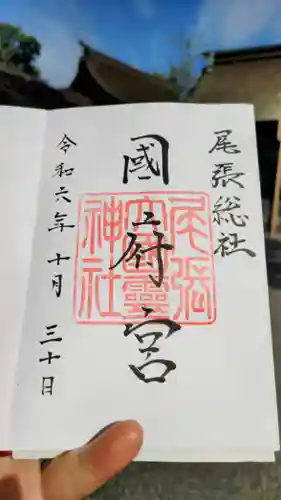 尾張総社
國府宮
尾張大國霊神社
令和六年十月三十日